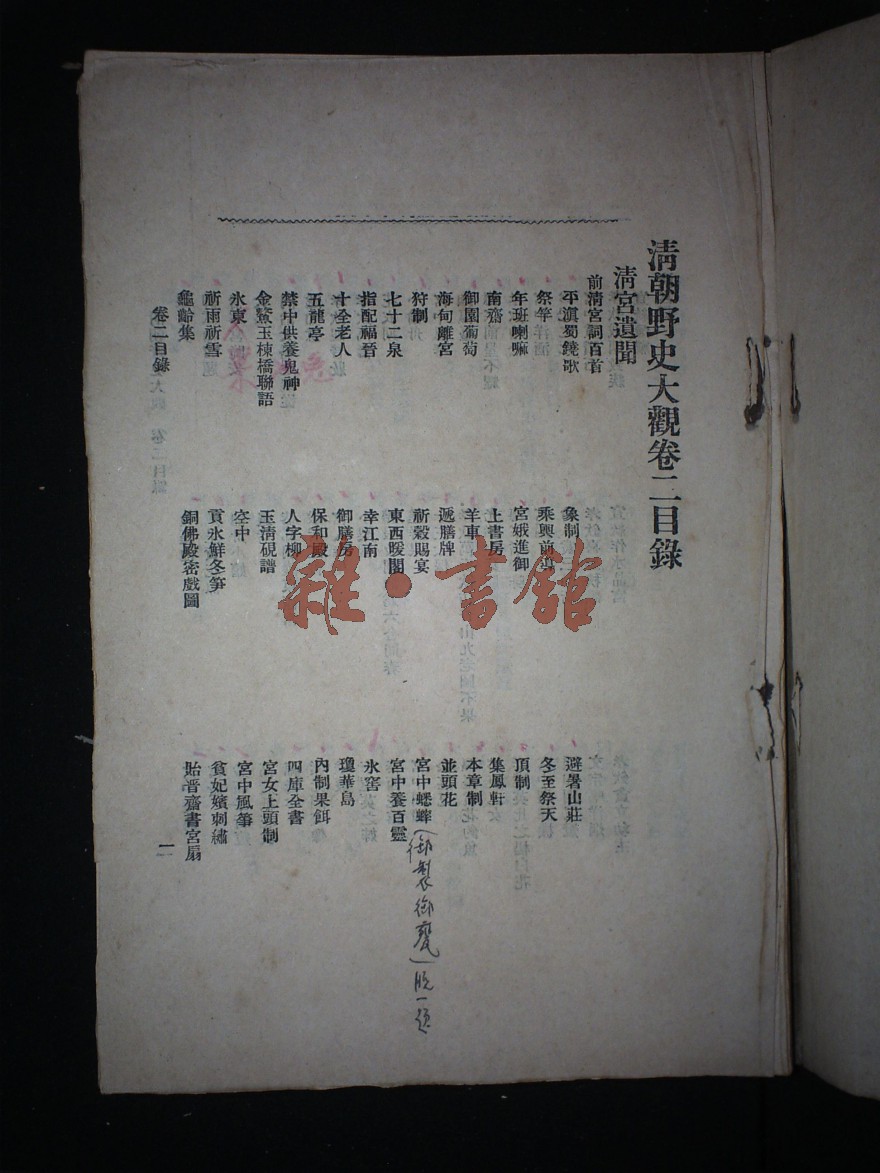 清朝野史大觀卷二目錄
清宮遺聞
前清宮詞百首
平滇蜀鐃歌　象制　避暑山莊
祭竿　乘輿前導　冬至祭天
年班喇嘛　宮娥進御　頂制
南齋　上書房　集鳳軒
御園葡萄　羊車　本章制
海甸離宮　遞膳牌　並頭花
狩制　祈穀賜宴　宮中蟋蟀（御製御甕）脫一
七十二泉　東西暖閣　宮中養百靈
指配福晉　幸江南　氷窖
十全老人　御膳房　瓊華島
五龍亭　保和殿　內制果餌
禁中供養鬼神　人字柳　四庫全書
金鰲玉棟橋聯語　玉清硯譜　宮女上頭制
氷東　空中　宮中風箏
祈雨祈雪　貢氷鮮冬笋　貧妃嬪刺繡
龜齡集　銅佛殿密戲圖　貽晉齋書宮扇
卷二目錄　一
雜·書舘